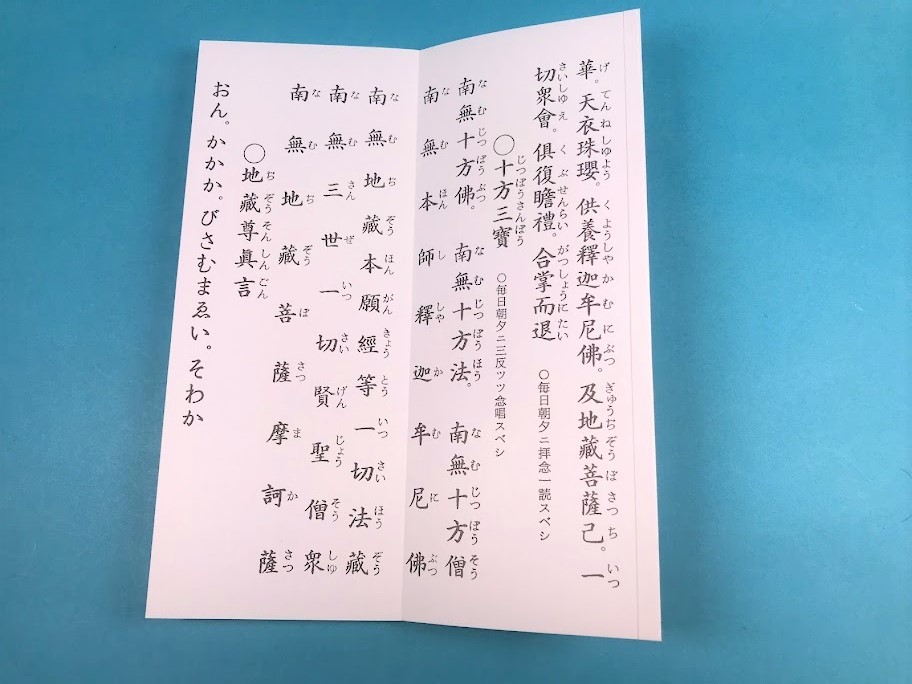 華。天衣珠瓔。供養釋迦牟尼佛。及地藏菩薩已。一
切衆會。俱復瞻禮。合掌而退
〇毎日朝夕ニ拝念一読スベシ
〇十方三寶
〇毎日朝夕ニ三反ツツ念唱スベシ
南無十方佛。南無十方法。南無十方僧
南無本師釋迦牟尼佛
南無地藏本願經等一切法藏
南無三世一切賢聖僧衆
南無地藏菩薩摩訶薩
〇地藏尊眞言
おん。かかか。びさむまゑい。そわか